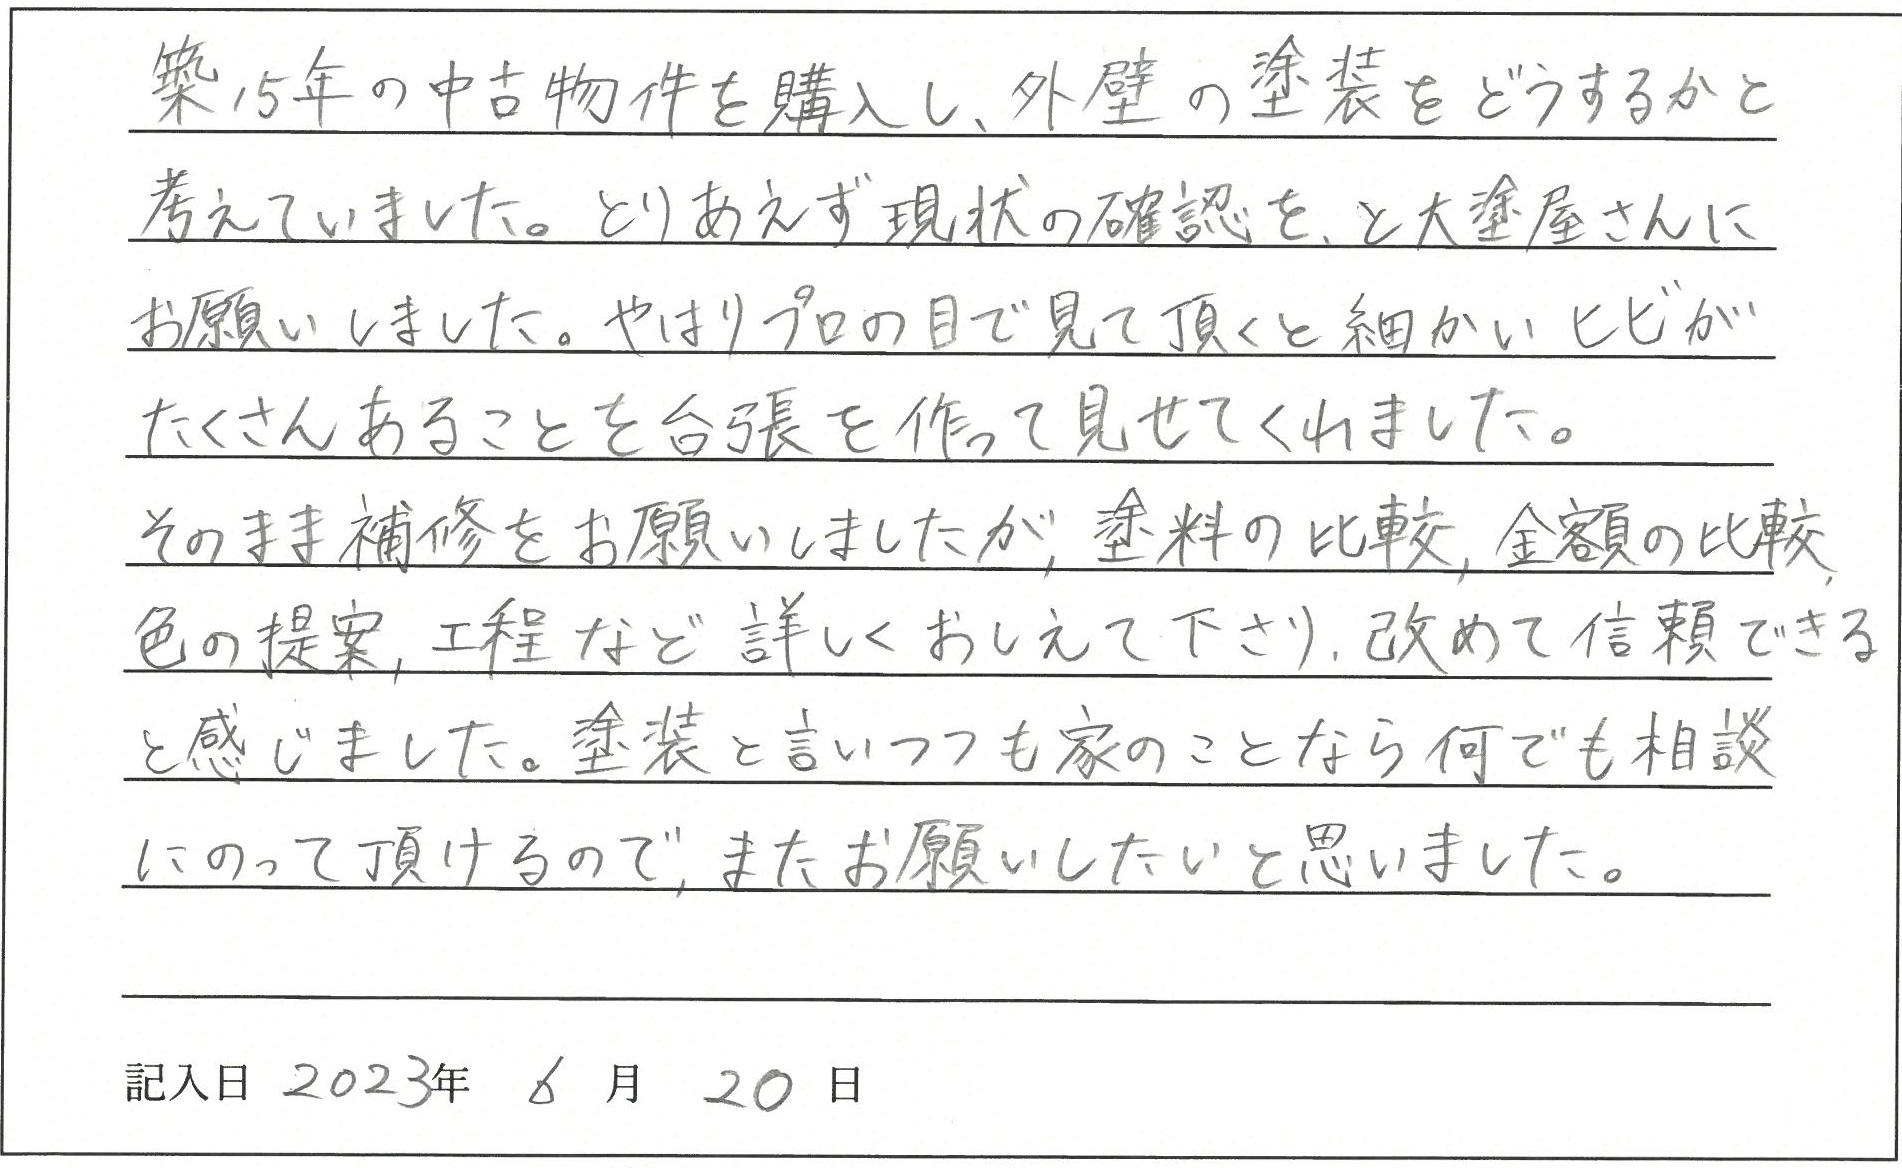 築15年の中古物件を購入し、外壁の塗装をどうするかと
考えていました。とりあえず現状の確認を、と大塗屋さんに
お願いしました。やはりプロの目で見て頂くと細かいヒビが
たくさんあることを台張を作って見せてくれました。
そのまま補修をお願いしましたが,塗料の比較,金額の比較,
色の提案,工程など詳しくおしえて下さり、改めて信頼できる
と感じました。塗装と言いつつも家のことなら何でも相談
にのって頂けるので,またお願いしたいと思いました。
記入日 2023年 6月 20日